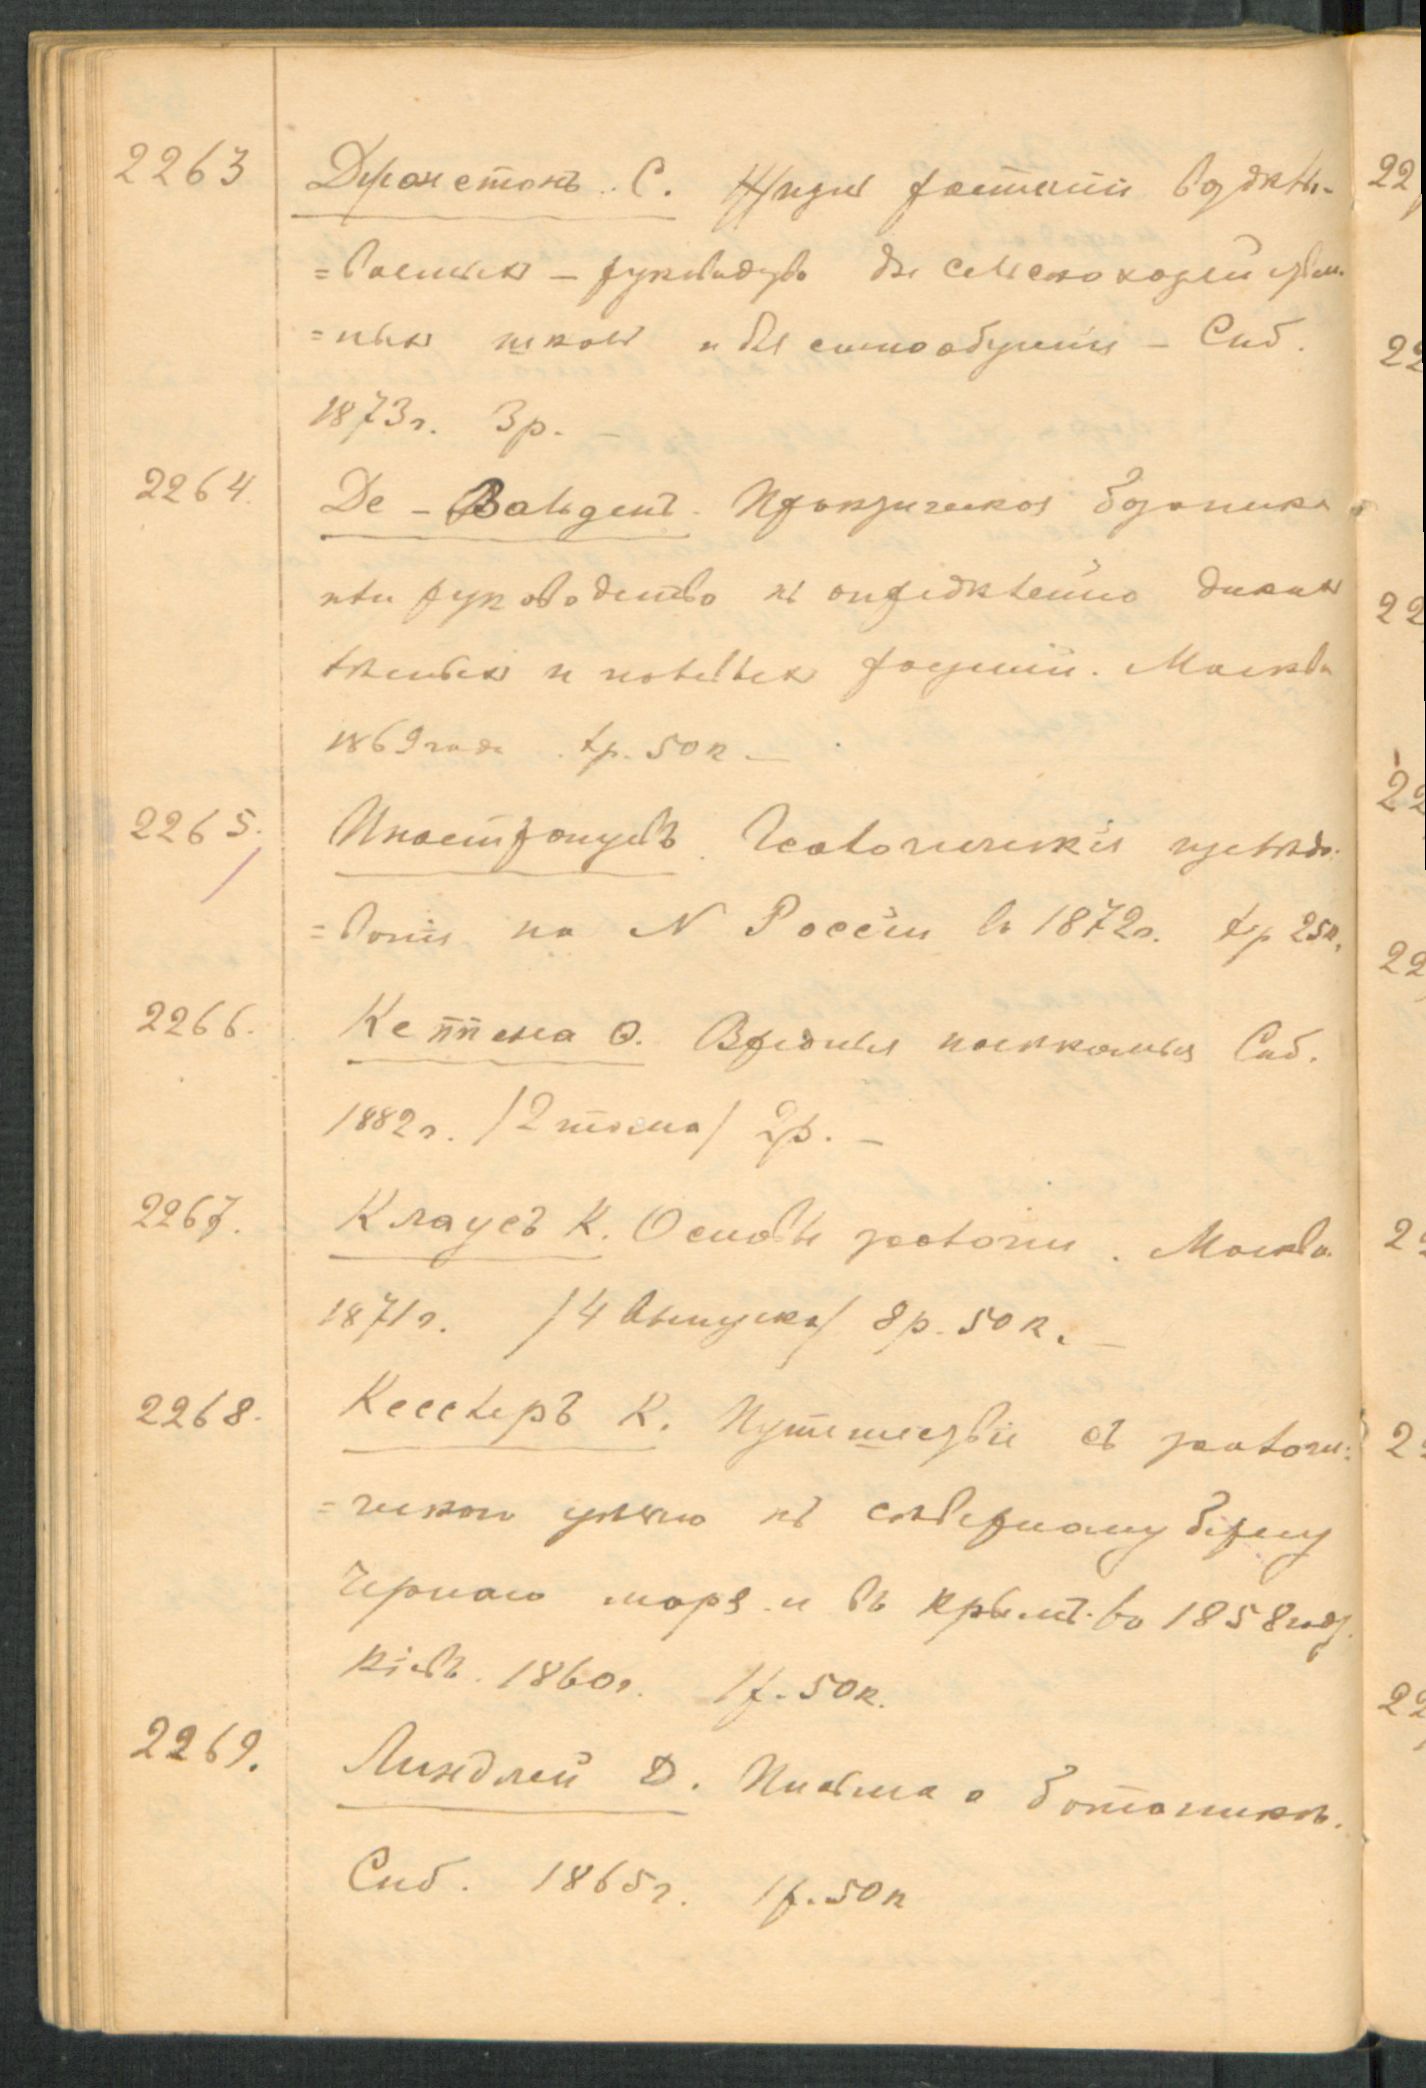 2263 Джонстонъ. С. Жизнь растеній воздѣлы-
=ваемыхъ – руководство для сельскохозяйствен-
=ныхъ школъ и для самообученія – Спб.
1873г. 3р. –
2264. Де-Вальденъ. Практическая ботаника
или руководство къ опредѣленію дикихъ
лѣсныхъ и полевыхъ растеній. Москва
1869 года. 1р. 50к –
2265. Иностранцевъ. Геологическія изслѣдо-
=ванія на N Россіи въ 1872г. 1р 25к.
2266. Кеппена Ѳ. Вредныя насѣкомыя Спб.
1882г. /2 тома/ 2р. –
2267. Клаусъ К. Основы зоологіи. Москва
1871г. /4 выпуска/ 8р. 50к. –
2268. Кесслеръ К. Путешествіе съ зоологи-
=ческою цѣлью къ сѣверному берегу
Чернаго моря и въ Крымъ въ 1858 году.
Кіевъ. 1860г. 1р. 50к.
2269. Линдлей Д. Письма о ботаникѣ.
Спб. 1865г. 1р. 50к
22
22
22
22
22
22
22
22